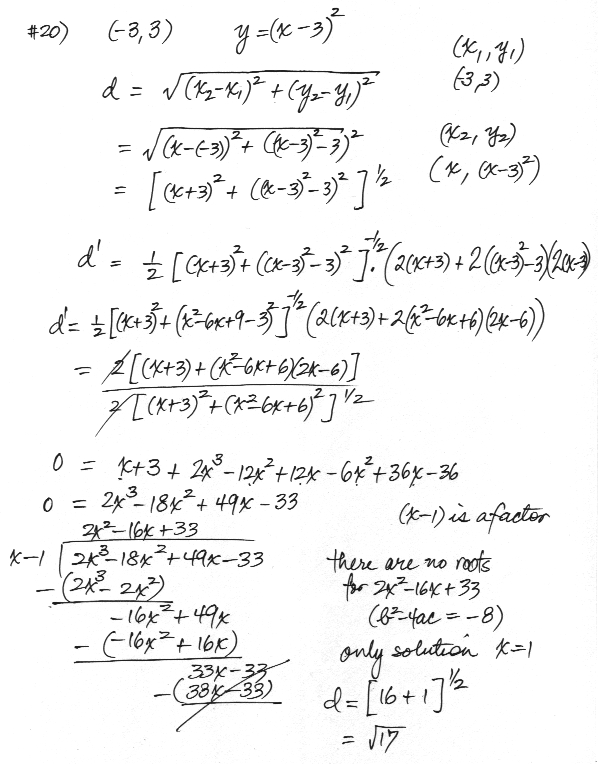 #20) (-3,3) y=(x-3)²
(x₁, y₁)
d = √(x₂-x₁)²+(y₂-y₁)²
(-3,3)
= √(x-(-3))²+((x-3)²-3)²
(x₂, y₂)
= [(x+3)²+((x-3)²-3)²]^½
(x, (x-3)²)
d' = ½[(x+3)²+((x-3)²-3)²]^-½·(2(x+3)+2((x-3)²-3)(2(x-3)
d' = ½[(x+3)²+(x²-6x+9-3)²]^-½(2(x+3)+2(x²-6x+6)(2x-6))
= 2[(x+3)+(x²-6x+6)(2x-6)]
2[(x+3)²+(x²-6x+6)²]^½
0 = x+3+2x³-12x²+12x-6x²+36x-36
0 = 2x³-18x²+49x-33
(x-1) is a factor
2x²-16x+33
x-1 2x³-18x²+49x-33
-(2x³-2x²)
-16x²+49x
-(-16x²+16x)
33x-33
-(33x-33)
there are no roots
for 2x²-16x+33
(b²-4ac = -8)
only solution x=1
d = [16+1]^½
= √17